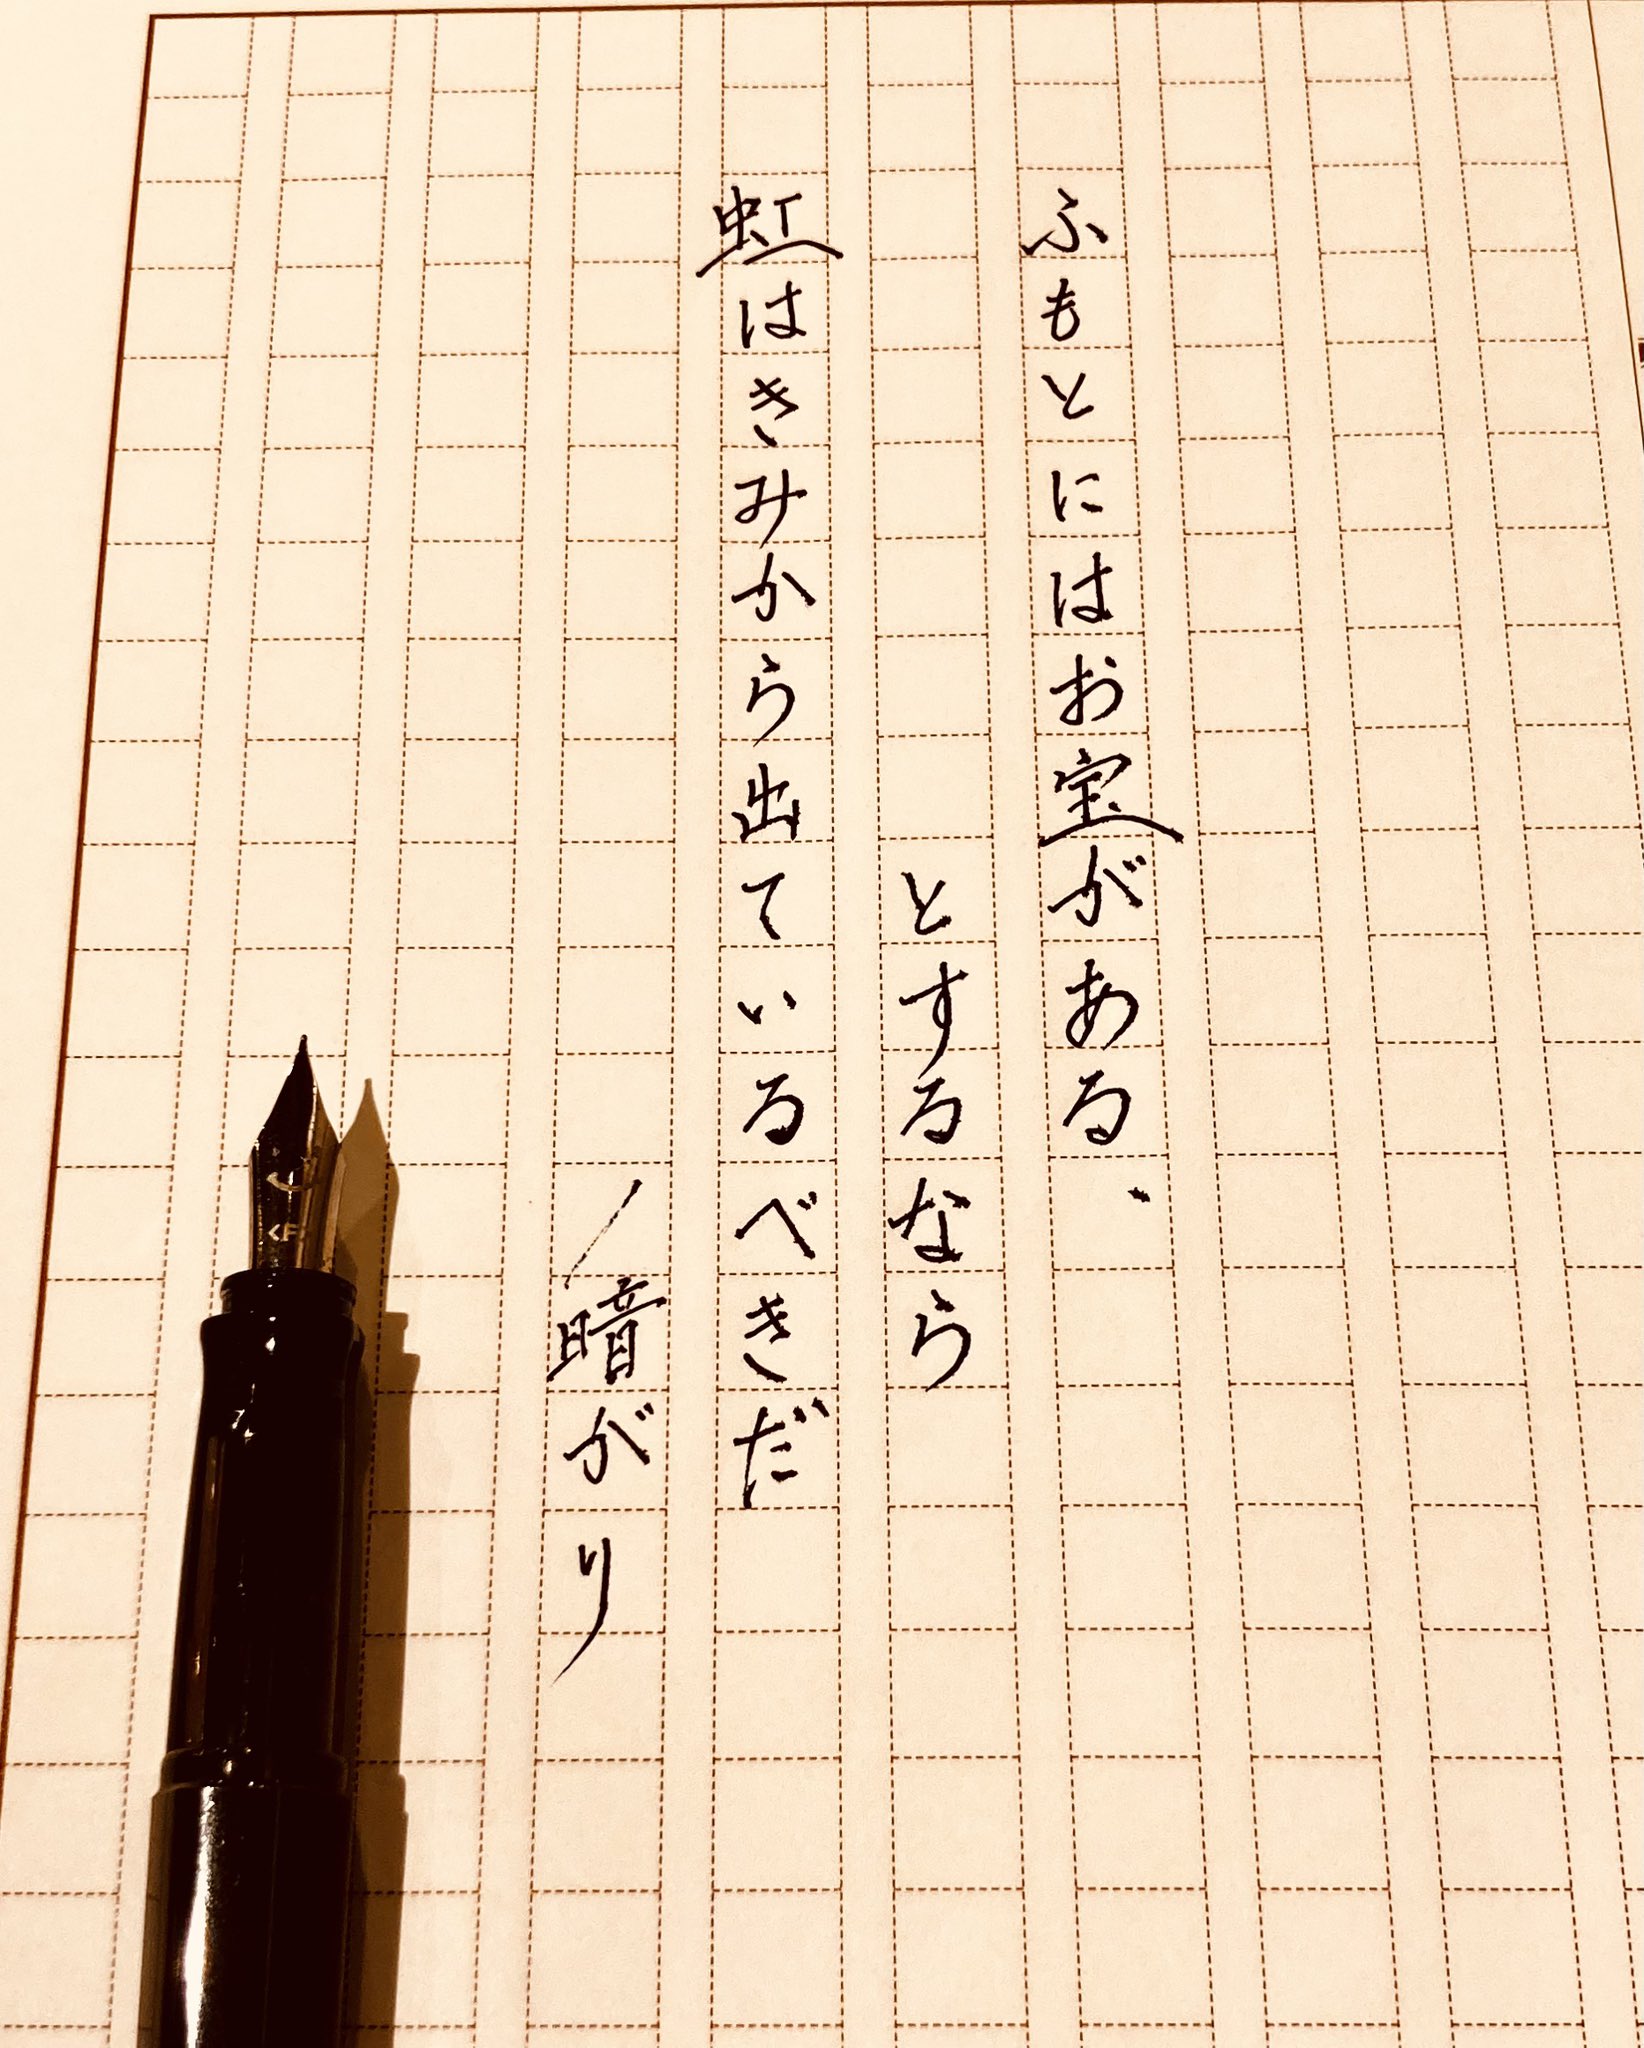 ふもとにはお宝がある、
とするなら
虹はきみから出ているべきだ
/暗がり
<F>